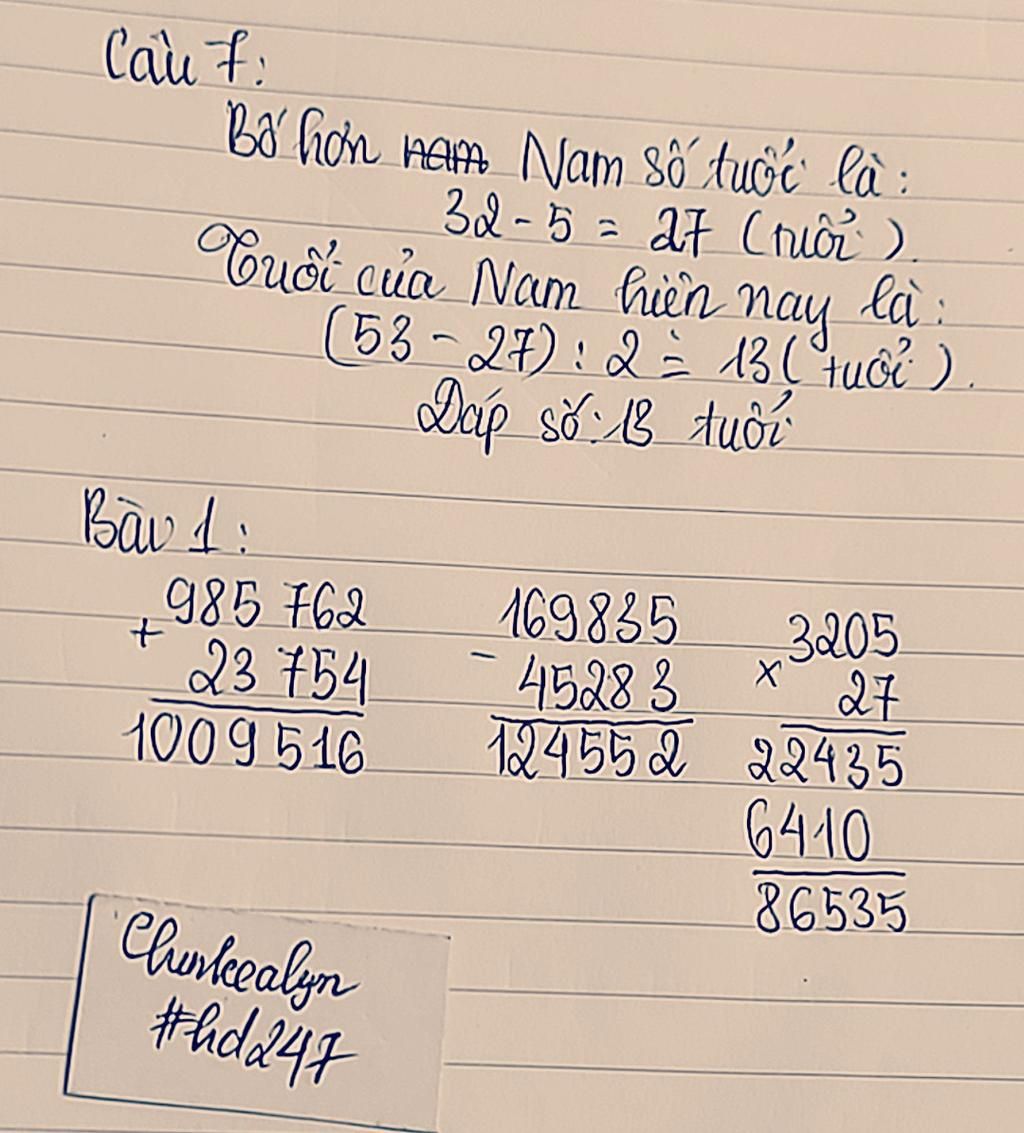 Câu 7:
Bố hơn nam Nam số tuổi là:
32 - 5 = 27 (tuổi).
Tuổi của Nam hiện nay là:
(53 - 27) : 2 = 13 (tuổi).
Đáp số: 13 tuổi
Bài 1:
985 762
+
23 754
1009 516
169835
-
45283
124552
3205
x
27
22435
6410
86535
#hd247